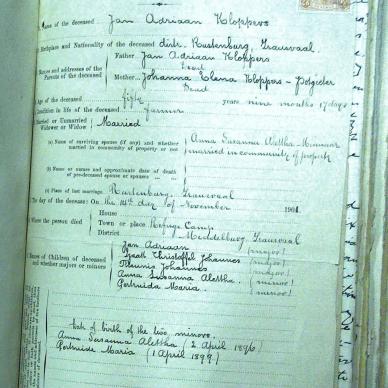 Name of the deceased Jan Adriaan Kloppers
Birthplace and Nationality of the deceased distr. Rustenburg, Transvaal
Names and addresses of the Parents of the deceased
Father Jan Adriaan Kloppers
Dead
Mother Johanna Elena Kloppers - Potgieter
Dead
Age of the deceased fifty years nine months 17 days
Condition in life of the deceased farmer
Married or Unmarried Widower or Widow Married
(a) Name of surviving spouse (if any) and whether married in community of property or not
Anna Susanna Aletha
married in community of property
(b) Name or names and approximate date of death of pre-deceased spouse or spouses
(c) Place of last marriage Rustenburg, Transvaal
The day of the decease: On the 14th day of November 1901
Where the person died
House
Town or place Refuge Camp
District Middelburg, Transvaal
Names of Children of deceased and whether majors or minors
Jan Adriaan (major)
Christoffel Johannes (major)
Theunis Johannes (major)
Anna Susanna Aletha (minor)
Gertruida Maria (minor)
date of birth of the two minors.
Anna Susanna Aletha (2 April 1896)
Gertruida Maria (1 April 1899)